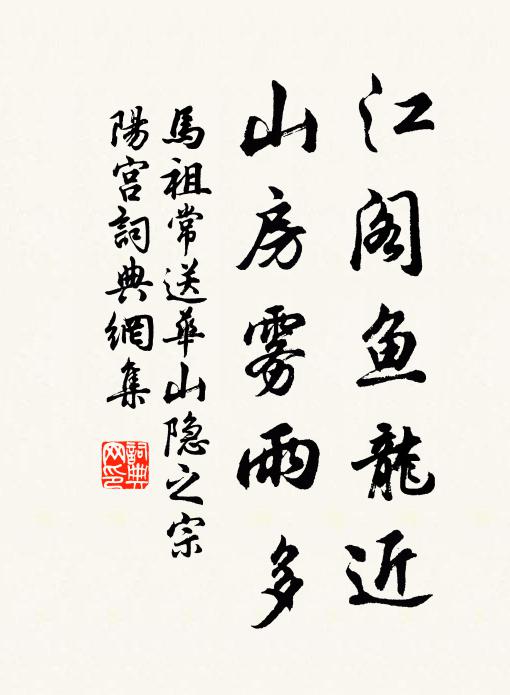 江阁鱼龍近
山房雾雨多
馬祖常送華山隐之宗
陽宫詞典網集
詞典网印